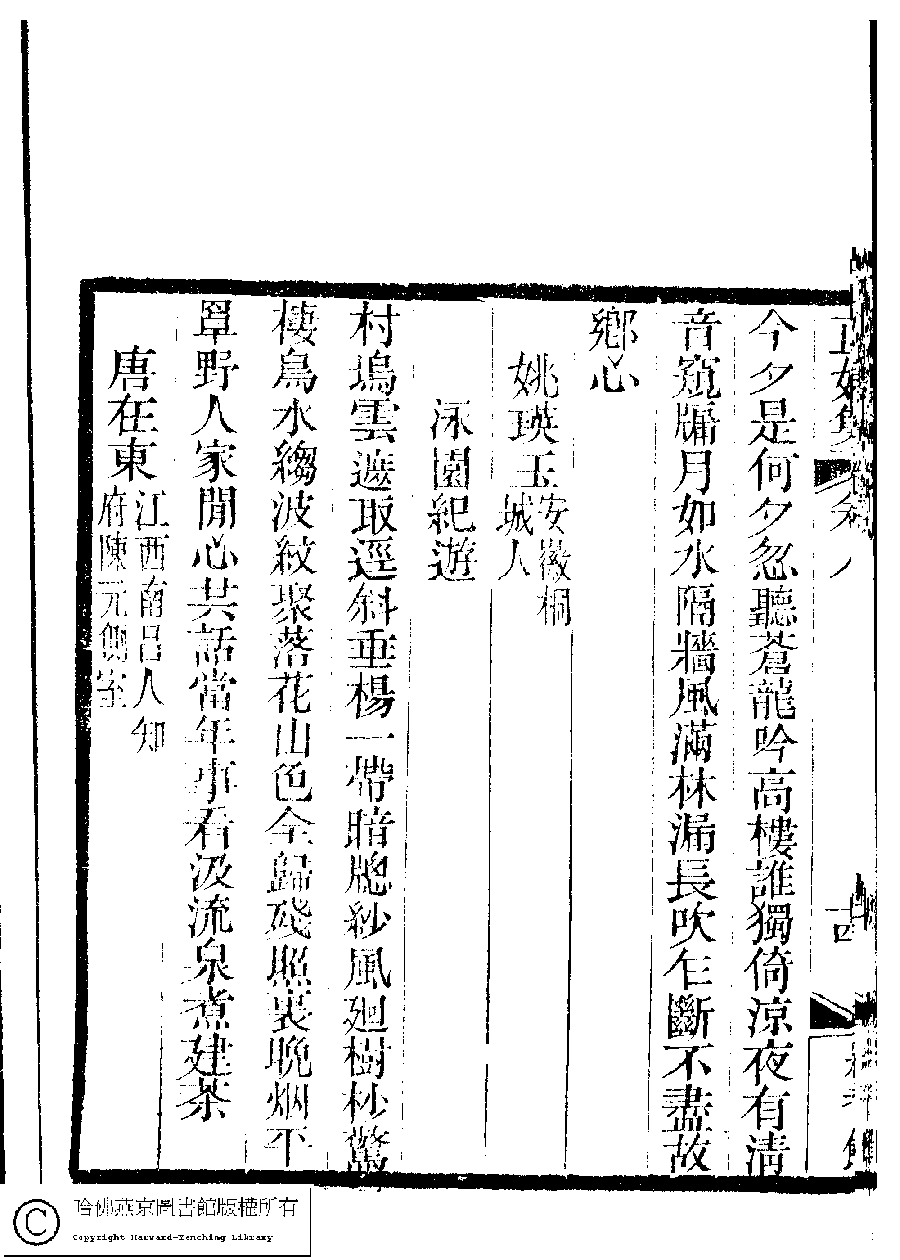 今夕是何夕忽聽蒼龍吟高樓誰獨倚涼夜有清
音窺牖月如水隔牆風滿林漏長吹乍斷不盡故
鄉心
姚瑛玉安徽桐
城人
泳園紀遊
村塢雲遮取逕斜垂楊一帶暗窗紗風廻樹杪驚
棲鳥水縐波紋聚落花山色全歸殘照裏晚烟平
罩野人家閒心共話當年事看汲流泉煮建茶
唐在東江西南昌人知
府陳元側室
十四
哈佛燕京圖書館版權所有
Copyright Harvard-Yenching Library